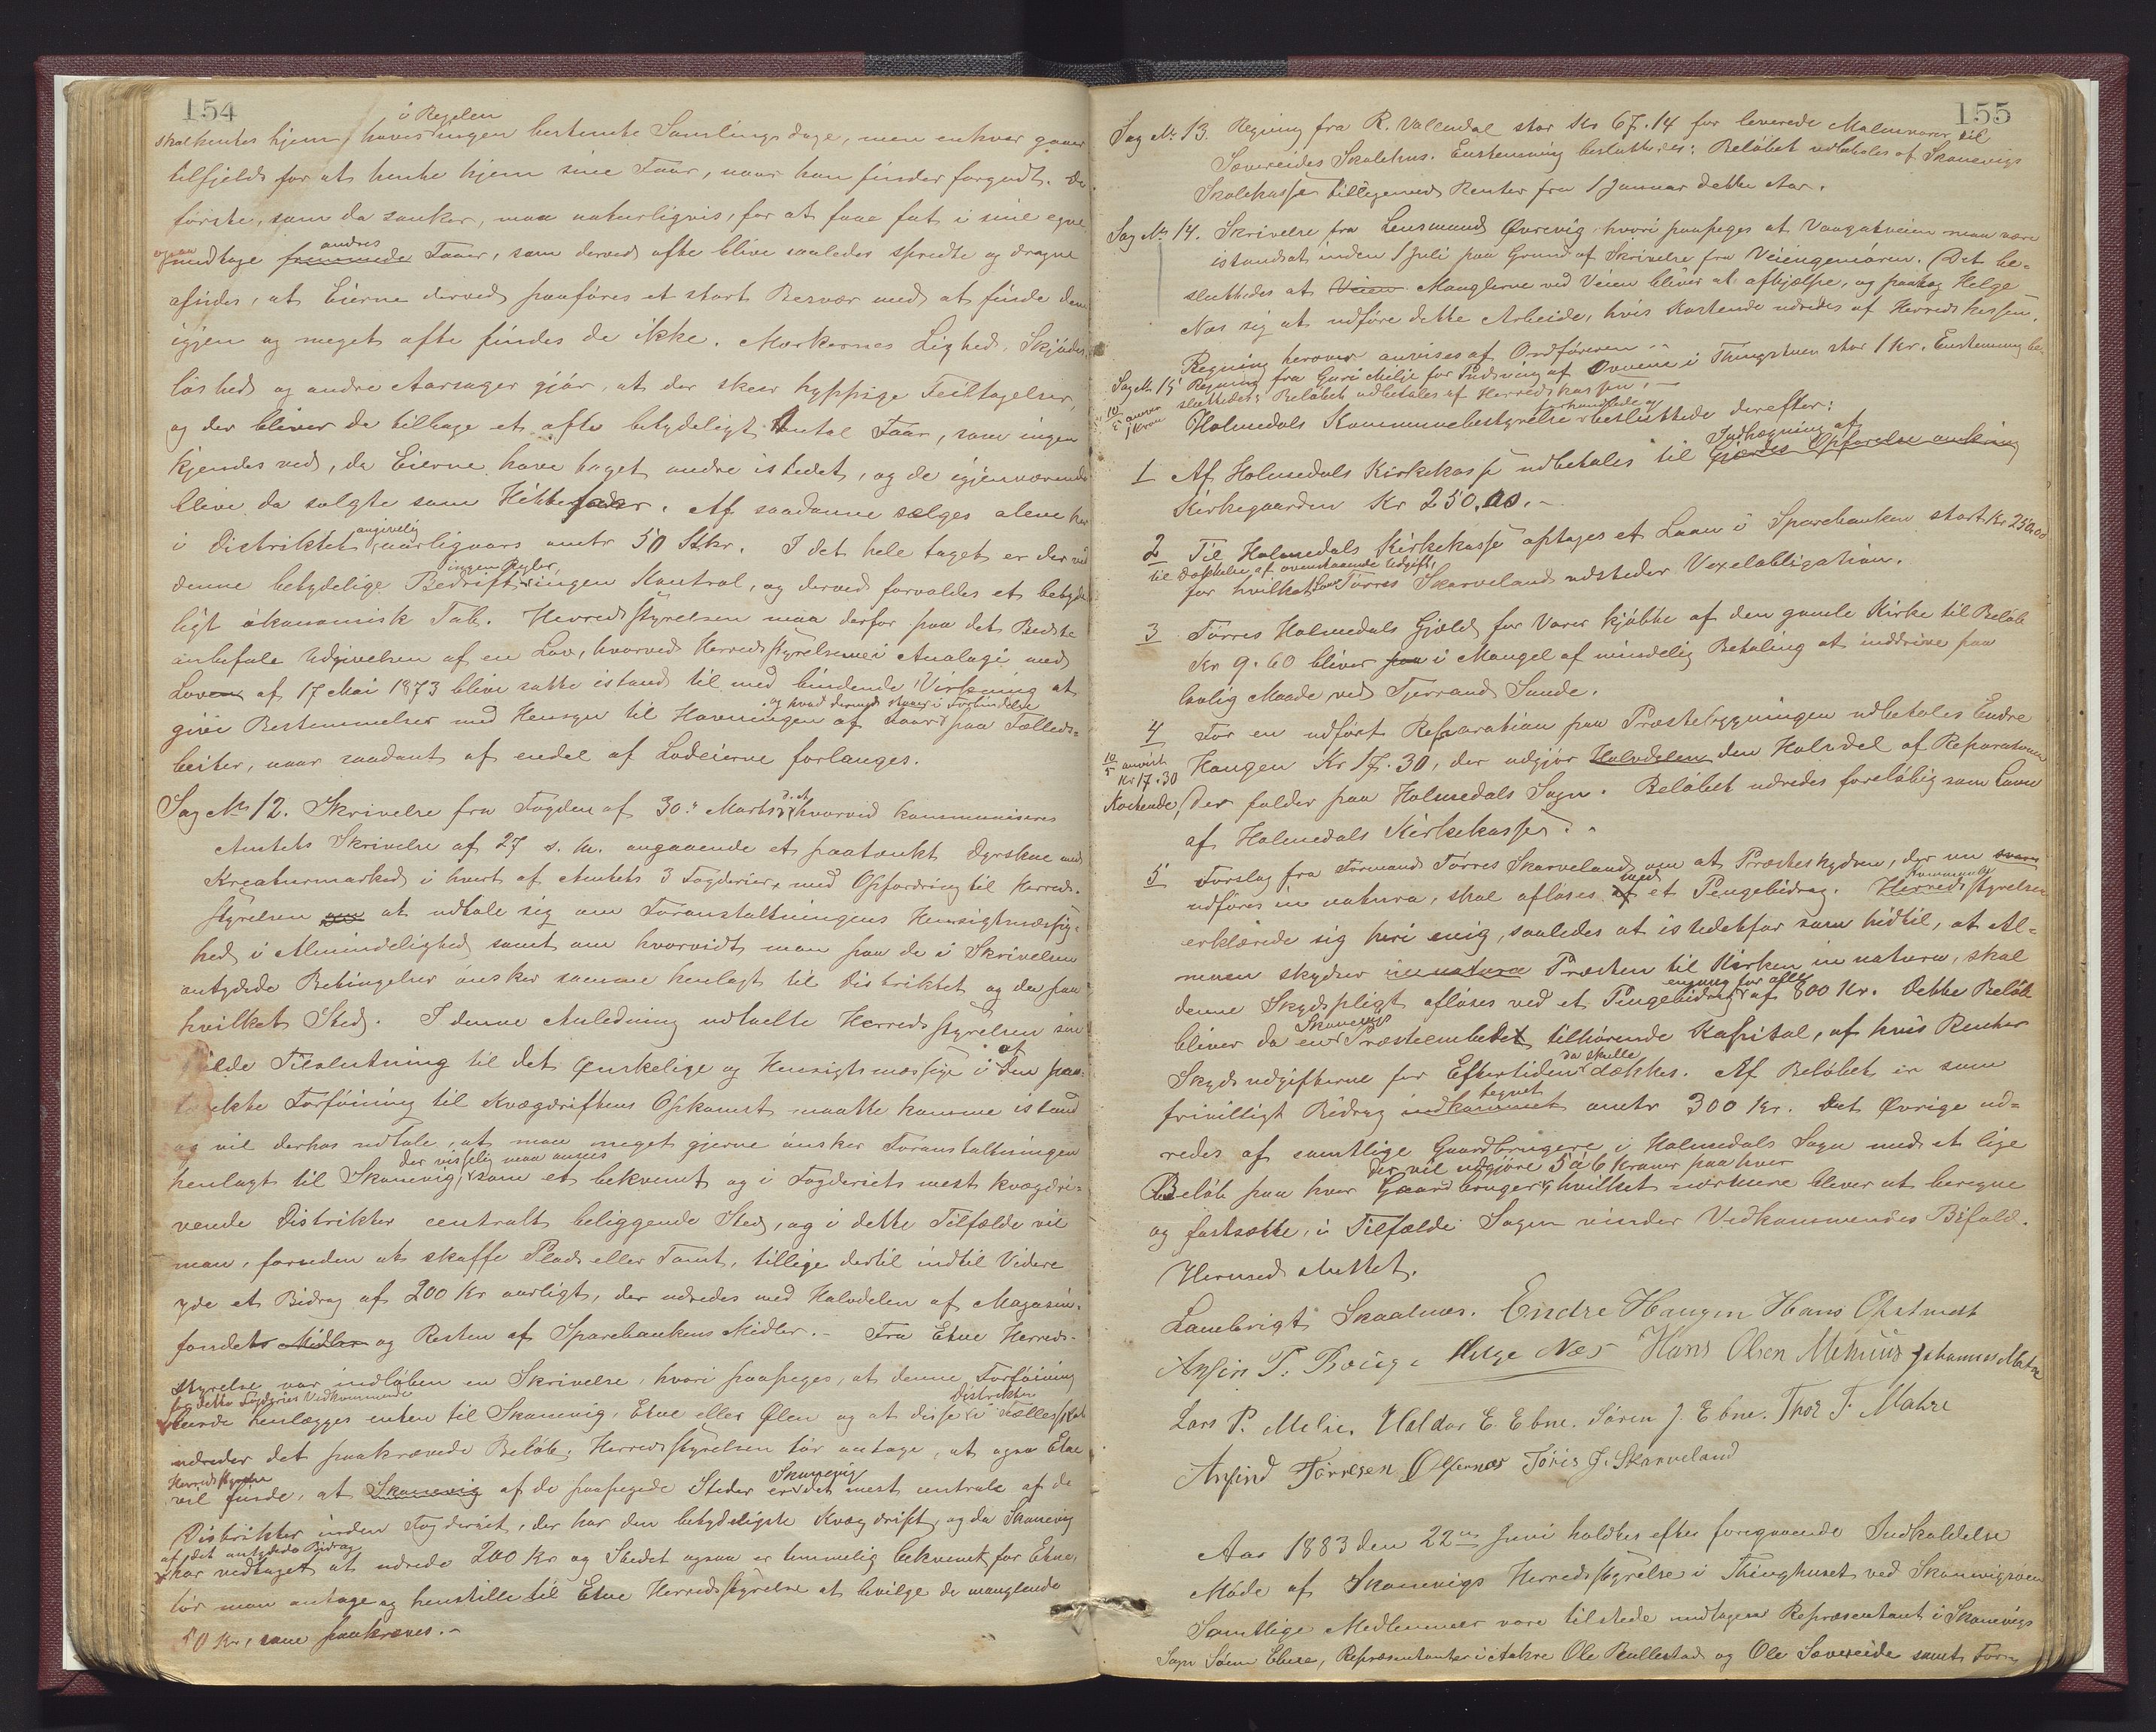 154
i Regelen
skal hentes hjem, haves ingen bestemte Samlingsdage, men enhver gaaer
tilfjelds for at hente hjem sine Faar, naar han finder forgodt. De
første, som da sanker, maa naturligvis, for at faae fat i sine egne
ogsaa medtage fremmede andres Faar, som derved ofte blive saaledes spredte og dragne
afsides, at Eierne derved paaføres et stort Besvær med at finde dem
igjen og meget ofte findes de ikke. Mærkernes Lighed, Skjødes-
løshed og andre Aarsager gjør, at der skeer hyppige Feiltagelser,
og der bliver da tilbage et ofte betydeligt Antal Faar, som ingen
kjendes ved, da Eierne have taget andre istedet, og de igjenværende
blive da solgte som Hittefaar. Af saadanne sælges alene her
i Distriktet angivelig aarligaars omtr 50 Stkr. I det hele taget er der ved
denne betydelige Bedrift ingen Regler, ingen Kontrol, og derved forvoldes et betyde
ligt økonomisk Tab. Herredsstyrelsen maa derfor paa det Bedste
anbefale Udgivelsen af en Lov, hvorved Herredsstyrelserne i Analogi med
Loven af 17 Mai 1873 blive satte istand til med bindende Virkning at
give Bestemmelser med Hensyn til Havningen af Faar og hvad dermed staaer i Forbindelse paa Fælleds-
beiter, naar saadant af endel af Lodeierne forlanges.
Sag No 12. Skrivelse fra Fogden af 30te Marts d. A. hvorved kommuniseres
Amtets Skrivelse af 27 s. M. angaaende et paatænkt Dyrskue med
Kreaturmarked i hvert af Amtets 3 Fogderier, med Opfordring til Herreds-
styrelsen om at udtale sig om Foranstaltningens Hensigtsmæssig-
hed i Almindelighed samt om hvorvidt man paa de i Skrivelsen
antydede Betingelser ønsker samme henlagt til Distriktet og da paa
hvilket Sted. I denne Anledning udtalte Herredsstyrelsen sin
fulde Tilslutning til det Ønskelige og Hensigtsmæssige i at den paa-
tænkte Forføining til Kvægdriftens Opkomst maatte komme istand
og vil derhos udtale, at man meget gjerne ønsker Foranstaltningen
henlagt til Skonevig, der visselig maa ansees som et bekvemt og i Fogderiets mest kvægdri-
vende Distrikter centralt beliggende Sted, og i dette Tilfælde vil
man, foruden at skaffe Plads eller Tomt, tillige dertil indtil Videre
yde et Bidrag af 200 Kr aarligt, der udredes med Halvdelen af Magasin-
fondets Midler og Resten af Sparebankens Midler. - Fra Etne Herreds-
styrelse var indløben en Skrivelse, hvori paapeges, at denne Forføining
for dette Fogderies Vedkommende
burde henlægges enten til Skonevig, Etne eller Ølen og at disse Distrikter i Fællesskab
udreder det paakrævede Beløb. Herredsstyrelsen tør antage, at ogsaa Etne
Herredsstyrelse
vil finde, at Skonevig af de paapegede Steder er Skonevig det mest centrale af de
Distrikter inden Fogderiet, der har den betydeligste Kvægdrift, og da Skonevig
af det antydede Bidrag
har vedtaget at udrede 200 Kr og Stedet ogsaa er temmelig bekvemt for Etne,
tør man antage og henstille til Etne Herredsstyrelse at bevilge de manglende
50 Kr, som paakræves. -
155
Sag No 13. Regning fra R. Vallendal stor Kr 67.14 for leverede Malervarer til
Sævereides Skolehus. Enstemmig besluttedes: Beløbet udbetales af Skonevigs
Skolekasse tilligemed Renter fra 1 Januar dette Aar.
Sag No 14. Skrivelse fra Lensmand Øvrevig hvori paapeges at Vaagatveien maa være
istandsat inden 1 Juli paa Grund af Skrivelse fra Veiingeniøren. Det be-
sluttedes at Veien Manglerne ved Veien bliver at afhjælpe, og paatog Helge
Næs sig at udføre dette Arbeide, hvis Kostende udredes af Herredskassen.
Regning herover anvises af Ordføreren. -
Sag No 15 Regning fra Guri Milje for Pudsning af Ovnene i Thingstuen stor 1 Kr. Enstemmig be-
sluttedes: Beløbet udbetales af Herredskassen. -
10/5 anvist 1 Krone
Holmedals Kommunebestyrelse forhandlede og besluttede derefter:
1 Af Holmedals Kirkekasse udbetales til Gjerdes Opførelse omkring Indhegning af
Kirkegaarden Kr 250,00. -
2 Til Holmedals Kirkekasse optages et Laan i Sparebanken stort Kr 250,00
til Dækkelse af ovenstaaende Udgift,
for hvilket Laan Tørres Skarveland udsteder Vexelobligation.
3 Tørres Holmedals Gjæld for Varer kjøbte af den gamle Kirke til Beløb
Kr 9.60 bliver paa i Mangel af mindelig Betaling at inddrive paa
lovlig Maade ved Tjerrand Sunde.
4 For en udført Reparation paa Præstebygningen udbetales Endre
10/5 anvist Kr 17.30
Haugen Kr 17.30, der udgjør Halvdelen den Halvdel af Reparationens
Kostende, der falder paa Holmedals Sogn. Beløbet udredes foreløbig som Laan
af Holmedals Kirkekasse. -
5 Forslag fra Formand Tørres Skarveland om at Præsteskydsen, der nu svares
udføres in natura, skal afløses af med et Pengebidrag. Herredsstyrelsen Kommunebe
erklærede sig heri enig, saaledes at istedetfor som hidtil, at Al-
muen skydser in natura Præsten til Kirken in natura, skal
denne Skydspligt afløses ved et Pengebidrag engang for alle af 800 Kr. Dette Beløb
bliver da en Skonevigs Præsteembedet tilhørende Kapital, af hvis Renter
Skydsudgifterne for Eftertiden da skulle dækkes. Af Beløbet er som
frivilligt Bidrag indkommet tegnet omtr 300 Kr. Det Øvrige ud-
redes af samtlige Gaardbrugere i Holmedals Sogn med et lige
Beløb paa hver Gaardbruger, der vil udgjøre 5 à 6 Kroner paa hver hvilket nærmere bliver at beregne
og fastsætte, i Tilfælde Sagen vinder Vedkommendes Bifald.
Hermed sluttet.
Lambrigt Skaalnes. Endre Haugen Hans Østmest
Anfin T. Bouge Helge Næs Hans Olsen Mehuus Johannes Matre
Lars P. Melie. Haldor E. Ebne. Søren J. Ebne. Thor T. Matre
Anfind Tørresen Ølfernes Tøris J. Skarveland
Aar 1883 den 22de Juni holdtes efter foregaaende Indkaldelse
Møde af Skonevigs Herredsstyrelse i Thinghuset ved Skonevigsøen
Samtlige Medlemmer vare tilstede undtagen Repræsentant i Skonevigs
Sogn Søren Ebne, Repræsentanter i Aakre Ole Rullestad og Ole Sævereide samt For-